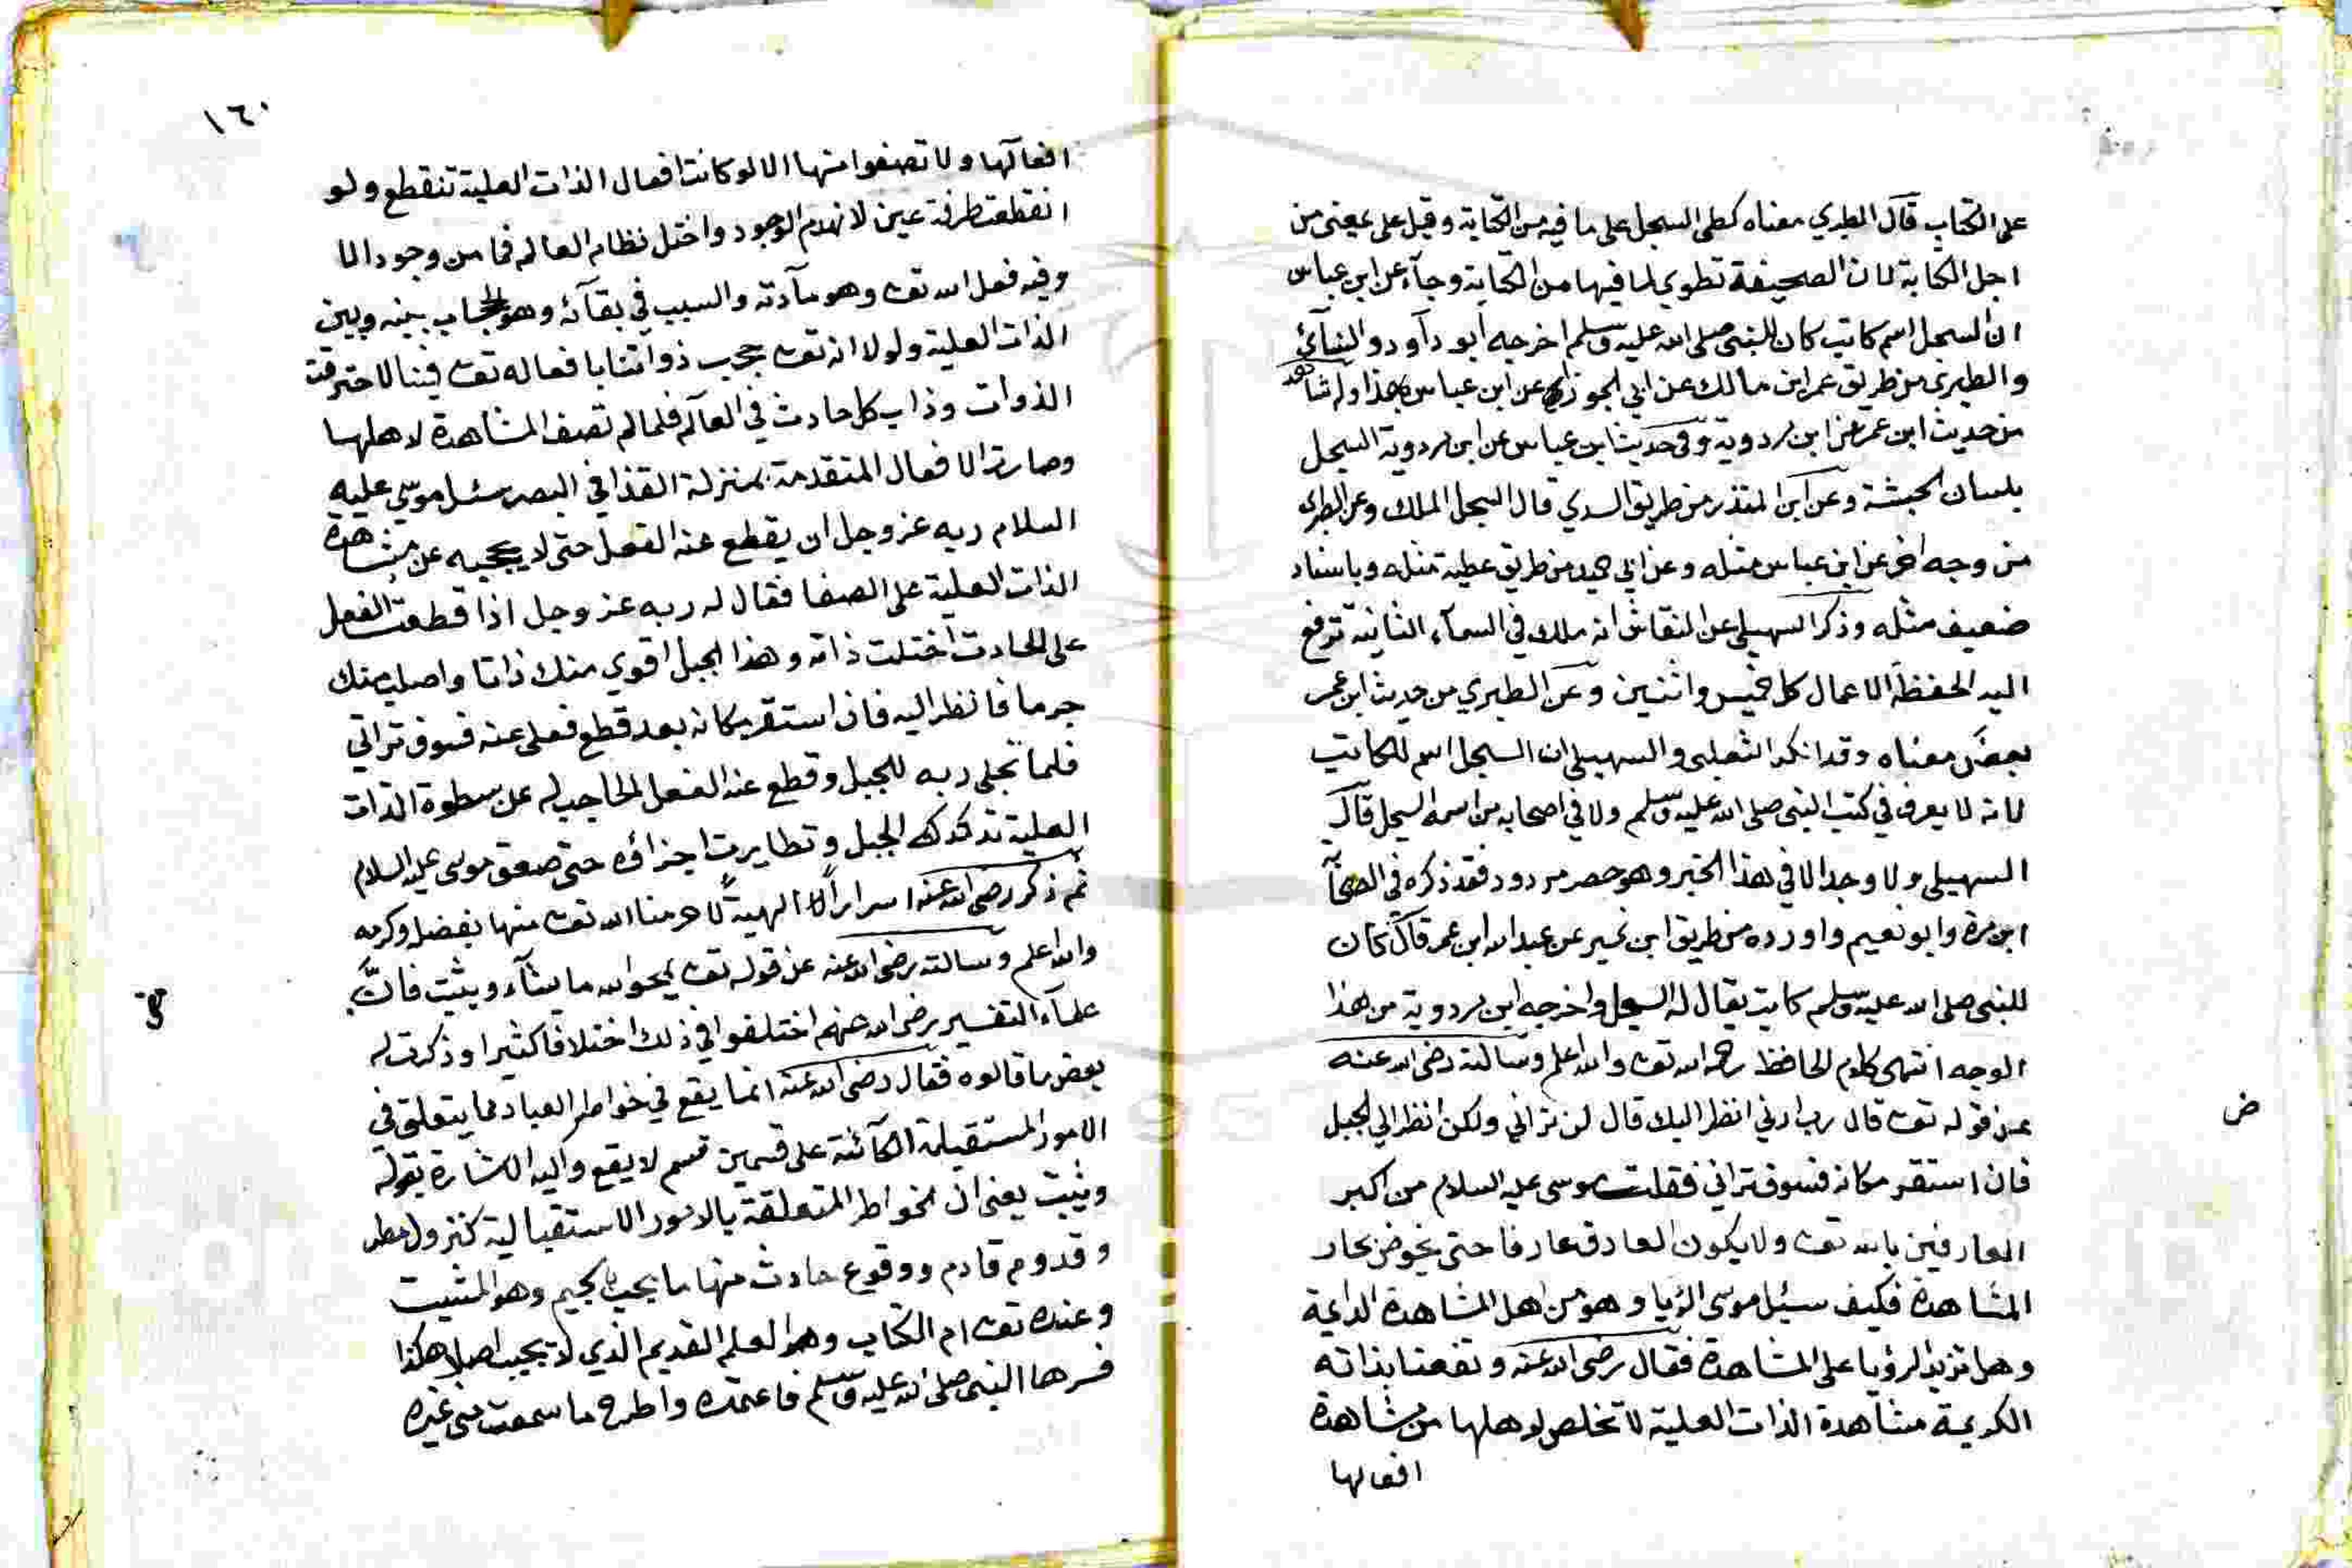 على الكتاب قال الطبري معناه كطي السجل على ما فيه من الكتابة وقيل على بمعنى من
اجل الكتابة لان الصحيفة تطوي لما فيها من الكتابة وجآء عن ابن عباس
ان السجل اسم كاتب كان للنبي صلى الله عليه وسلم اخرجه ابو دآود والنسآئي
والطبري من طريق عمر ابن مالك عن ابي الجوزآء عن ابن عباس بهذا وله شاهد
من حديث ابن عمر عن ابن مردوية وفي حديث ابن عباس عن ابن مردوية السجل
بلسان الحبشة وعن ابن المنذر من طريق السدي قال السجل الملك وعن الطبري
من وجه اخر عن ابن عباس مثله وعن ابي حميد من طريق عطية مثله وباسناد
ضعيف مثله وذكر السهيلي عن النقاش انه ملك في السمآء الثانية ترفع
اليه الحفظة الاعمال كل خميس واثنين وعن الطبري من حديث ابن عمر
بعض معناه وقد انكر الثعلبي والسهيلي ان السجل اسم للكاتب
لانه لا يعرف في كتب النبي صلى الله عليه وسلم ولا في اصحابه من اسمه السجل قال
السهيلي ولا وجد الا في هذا الخبر وهو حصر مردود فقد ذكره في الصحابة
ابن مرة وابو نعيم واورده من طريق ابن نمير عن عبد الله ابن عمر قال كان
للنبي صلى الله عليه وسلم كاتب يقال له السجل واخرجه ابن مردوية من هذا
الوجه انتهى كلام الحافظ رحمه الله تعـ والله اعلم وسالته رضى الله عنه
عن قوله تعـ قال رب ارني انظر اليك قال لن تراني ولكن انظر الي الجبل
ض
فان استقر مكانه فسوف تراني فقلت موسى عليه السلام من اكبر
العارفين بالله تعـ ولا يكون العارف عارفا حتى يخوض بحار
المشاهدة فكيف سئل موسى الرؤيا وهو من اهل المشاهدة الدايمة
وهل تزيد الرؤيا على المشاهدة فقال رضى الله عنه ونفعنا بذاته
الكريمة مشاهدة الذات العلية لا تخلص لاهلها من مشاهدة
افعالها
١٦٠
افعآلها ولا تصفوا منها الا لو كانت افعال الذات العلية تنقطع ولو
انقطعت طرفة عين لانهدم الوجود واختل نظام العالم فما من وجود الا
وفيه فعل الله تعـ وهو مآدته والسبب في بقآئه وهو الحجاب بينه وبين
الذات العلية ولولا انه تعـ حجب ذواتنا بافعاله تعـ فينا لاحترقت
الذوات وذاب كل حادث في العآلم فلما لم تصف المشاهدة لاهلها
وصارت الافعال المتقدمة بمنزلة القذا في البصر سئل موسى عليه
السلام ربه عز وجل ان يقطع عنه الفعل حتى لا يحجبه عن مشاهدة
الذات العلية على الصفا فقال له ربه عز وجل اذا قطعت الفعل
على الحادث اختلت ذاته وهذا الجبل اقوي منك ذاتا واصلب منك
جرما فانظر اليه فان استقر مكانه بعد قطع فعلى عنه فسوف تراني
فلما تجلى ربه للجبل وقطع عنه الفعل الحاجب له عن سطوة الذات
العلية تدكدك الجبل وتطايرت اجزاؤه حتى صعق موسى عليه السلام
ثم ذكر رضى الله عنه اسرارًا الهيةً لا حرمنا الله تعـ منها بفضله وكرمه
والله اعلم وسالته رضى الله عنه عن قوله تعـ يمحوا الله ما يشآء ويثبت فان
علمآء التفسير رضى الله عنهم اختلفوا في ذلك اختلافا كثيرا وذكرت له
بعض ما قالوه فقال رضى الله عنه انما يقع في خواطر العباد مما يتعلق في
الامور المستقبلة الكآئنة على قسمين قسم لا يقع واليه الاشارة بقوله
ويثبت يعنى ان الخواطر المتعلقة بالامور الاستقبالية كنزول مطر
وقدوم قادم ووقوع حادث منها ما يجيب وهو المثبت
وعنده تعـ ام الكتاب وهو العلم القديم الذي لا يخيب اصلا هكذا
فسرها النبي صلى الله عليه وسلم فاعتمده واطرح ما سمعت من غيره